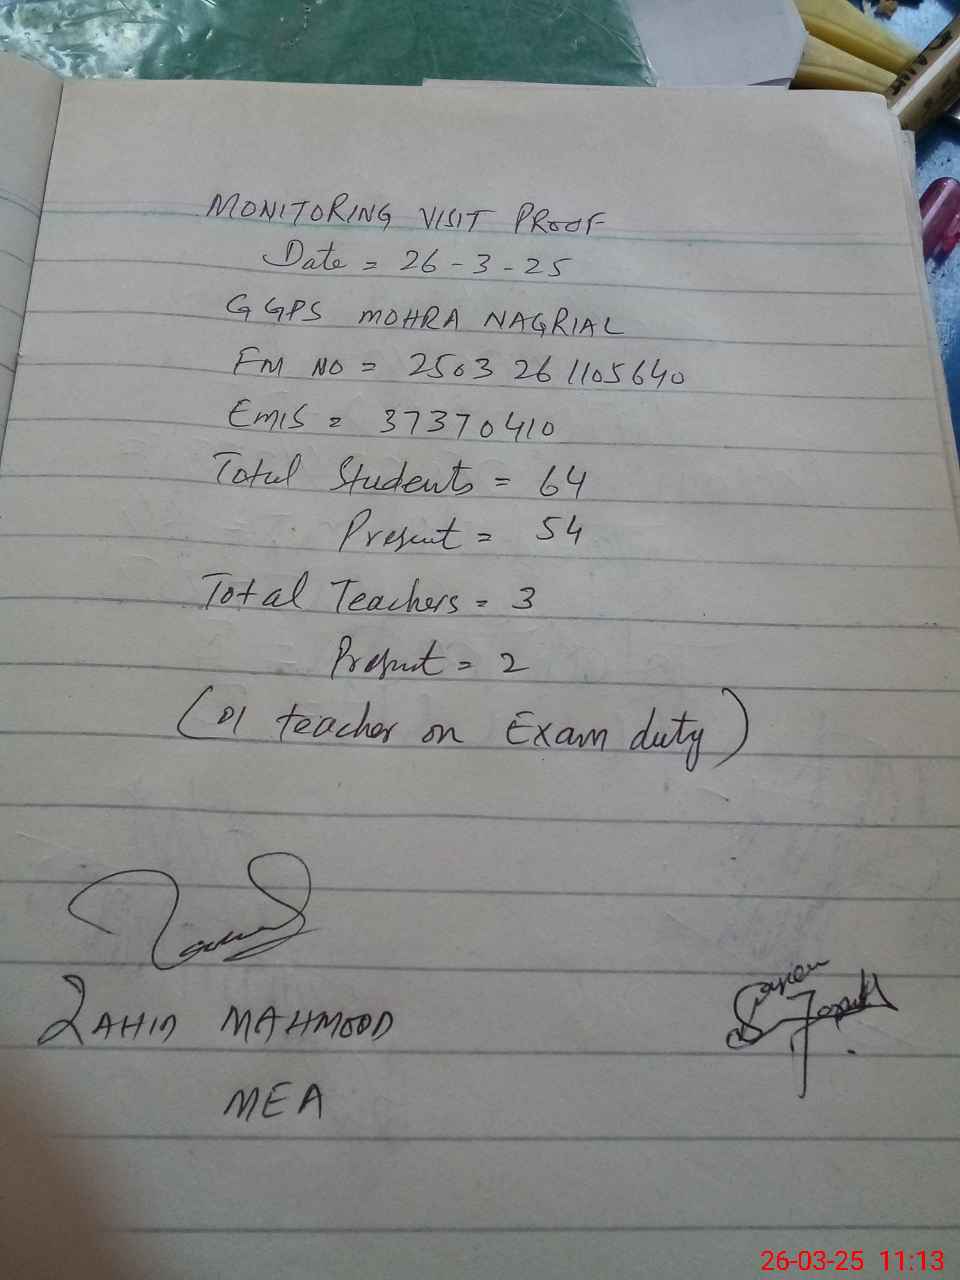 MONITORING VISIT PROOF
Date = 26-3-25
GGPS MOHRA NAGRIAL
FM NO = 2503 261105640
EMIS = 37370410
Total Students = 64
Present = 54
Total Teachers = 3
Present = 2
(01 teacher on Exam duty)
ZAHID MAHMOOD
MEA
26-03-25 11:13